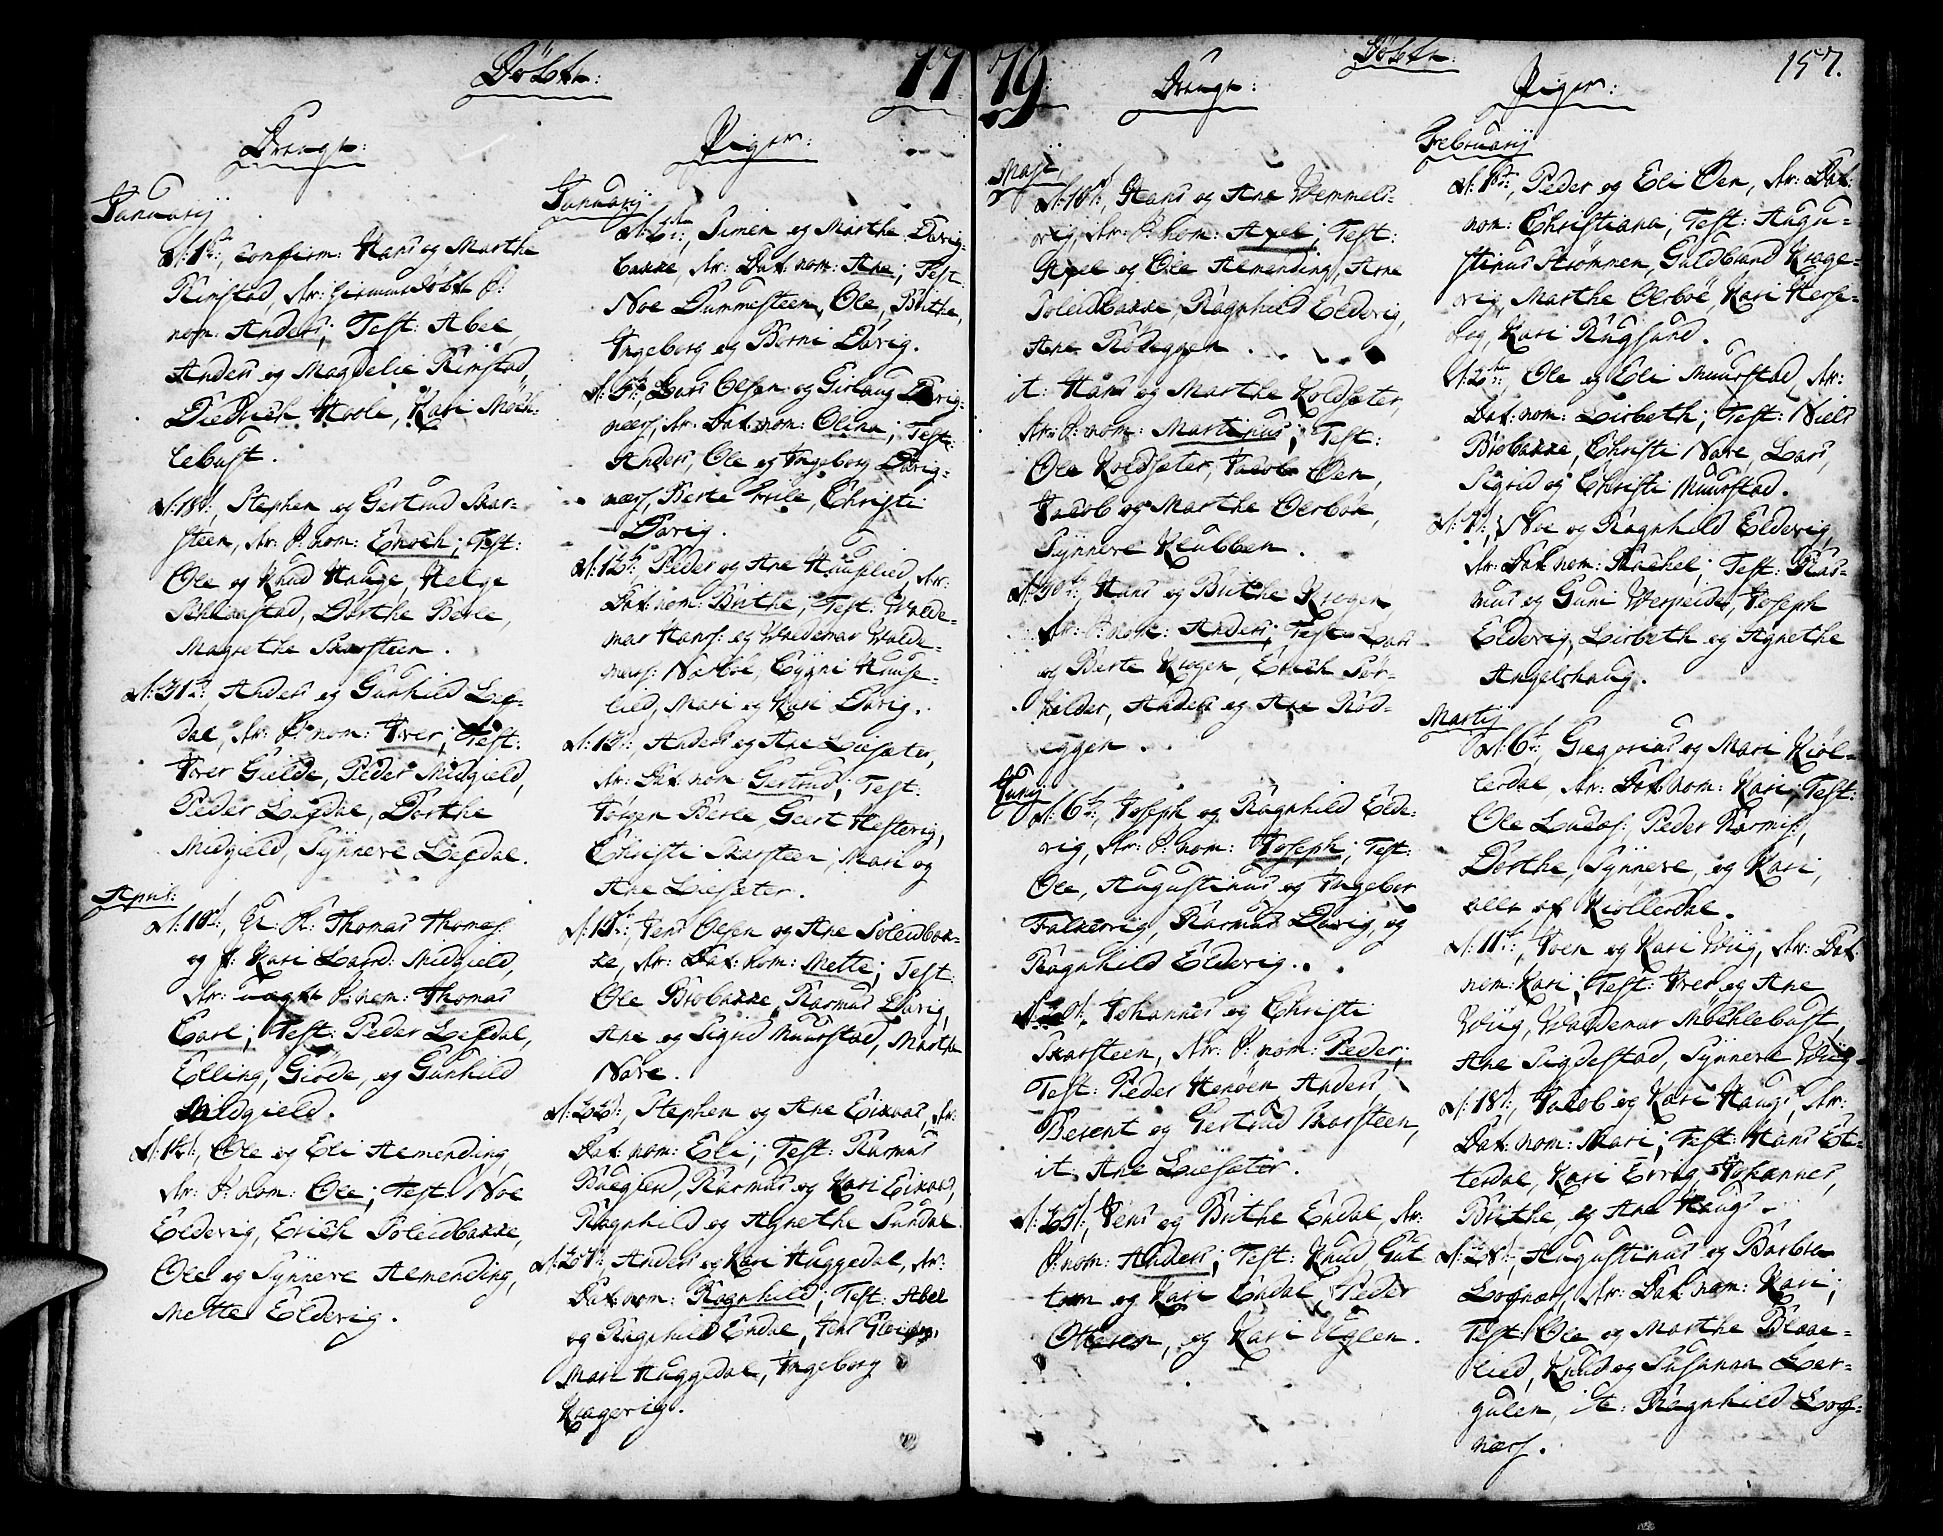 Döbte:
17
Drenge:
Januarij
d: 1ste, confirm: Hans og Marthe
Rimstad, dr: hiemmedöbte S:
nom: Anders; Test: Abel,
Anders og Magdelie Rimstad,
Diedrich Hoole, Kari Möch-
lebust.
d: 18d, Stephen og Gertrud Skar-
steen, dr: S: nom: Enoch; Test:
Ole og Knud Hauge, Helge
Dorthe Berle,
Magrethe Skarsteen.
d: 31te, Anders og Gunhild Lef-
dal, dr: S: nom: Iver; Test:
Iver Gielde, Peder Midgield,
Peder Lefdal, Dorthe
Midgield, Synneve Lefdal.
April:
d: 10d, Thomas Thomes:
og Kari Lasd: Midgield,
dr: S: nom: Thomas
Carl; Test: Peder Lefdal,
Elling, Giöde, og Gunhild
Midgield.
Ole og Eli Almending,
dr: S: nom: Ole; Test: Noe
Eldevig, Erich Soleidbakke,
Ole og Synneve Almending,
Mette Eldevig.
Piger:
Januarij
Simen og Marthe Davig-
bakke, dr: Dat: nom: Ane; Test
Noe Dummesteen, Ole, Brithe,
Ingeborg og Berni Davig.
Lars Olsen og Girlaug Davig-
næss, dr: Dat: nom: Olina; Test:
Anders, Ole og Ingeborg Davig-
næss, Berte Christi
Davig.
d: 12te, Peder og Ane Hauslied, dr:
Dat: nom: Brithe; Test: Walde-
mar Hans: og Waldemar Walde-
mars: Navöe, Hause-
lied, Mari og Kari Davig.
Anders og Ane Liesæter,
dr: Dat: nom: Gertrud; Test:
Törgen Berle, Geert Hestevig,
Christi Skarsteen, Mari og
Ane Liesæter.
d: 18te, Jens Olsen og Ane Soleidbak-
ke, dr: Dat: nom: Mette; Test:
Ole Brobakke, Rasmus Davig,
Ane og Sigrid Muurstad, Marthe
Nave.
d: 22d, Stephen og Ane Eiknæs, dr:
Dat: nom: Eli; Test: Rasmus
Rasmus og Kari Eiknæs,
Ragnhild og Agnethe Sundal.
Anders og Kari Huggedal, dr:
Dat: nom: Ragnhild; Test: Abel
og Ragnhild Endal, Jens
Mari Huggedal, Ingeborg
Kragevig.
79
Döbte:
157.
Drenge:
Maji
d: 10d, Hans og Ane Hemmels-
vig, dr: S: nom: Axel; Test:
Axel og Ole Almending, Ane
Soleidbakke, Ragnhild Eldevig,
Ane Rödeggen.
it: Hans og Marthe Koldsæter,
dr: S: nom: Martinus; Test:
Ole Koldsæter, Jacob Öen,
Jacob og Marthe Oterböe,
Synneve Klubben.
d: 30te, Hans og Brithe Krogen
dr: S: nom: Anders; Test: Lars
og Berte Krogen, Erich
Anders og Ane Röd-
eggen.
Junij
d: 6te, Joseph og Ragnhild Elde-
vig, dr: S: nom: Joseph; Test:
Ole, Augustinus og Ingebor
Falkevig, Rasmus Davig, og
Ragnhild Eldevig.
Johannes og Christi
Skarsteen, dr: S: nom: Peder;
Test: Peder Henöen, Anders,
Berent og Gertrud Skarsteen,
it: Ane Liesæter.
Jens og Brithe Endal, dr:
S: nom: Anders; Test: Knud Gut
og Kari Endal, Peder
og Kari Uglen.
Piger:
Februarij
Peder og Eli Öen, dr: Dat:
nom: Christiana; Test: Augu-
stinus Strömmen, Guldbrand Krage-
vig, Marthe Oterböe, Kari Herse-
dag, Kari Rugsund.
Ole og Eli Muurstad, dr:
Dat: nom: Lisbeth; Test: Niels
Brobakke, Christi Nave, Lars,
Sigrid og Christi Muurstad.
Noe og Ragnhild Eldevig,
dr: Dat: nom: Rachel; Test: Ras-
mus og Guni Werpeide, Joseph
Eldevig, Lisbeth og Agnethe
Angelshaug.
Martij
d: 6te, Gregorius og Mari Kiöl-
lerdal, dr: Dat: nom: Kari; Test:
Ole Peder Rasmis:,
Dorthe, Synneve, og Kari,
alle af Kiöllerdal.
d: 11te, Joen og Kari Wiig, dr: Dat:
nom: Kari; Test: Iver og Ane
Wiig, Waldemar Möchlebust,
Ane Sigdestad, Synneve Wiig.
d: 18d, Jacob og Kari Haugs, dr:
Dat: nom: Mari; Test: Hans Et-
terdal, Kari Johannes,
Brithe, og Ane Haugs.
d: 28d, Augustinus og Barbra
Lofnæs, dr: Dat: nom: Kari;
Test: Ole og Marthe Blaae-
lied, Knud og Susanna Lar-
gulen, it: Ragnhild Lof-
næss.